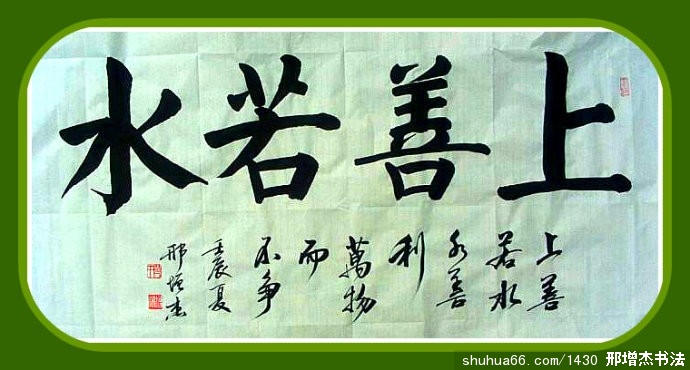 上善若水
上善
若水
水善
利
萬物
而
不争
壬辰夏
邢增杰
shuhua66.com/1430 邢增杰书法